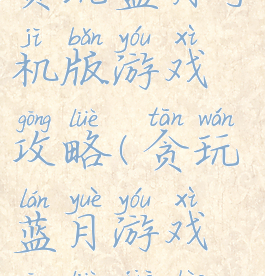 jī bǎn yóu xì
机版游戏
gōng lüè tān wán
攻略(贪玩
lán yuè yóu xì
蓝月游戏